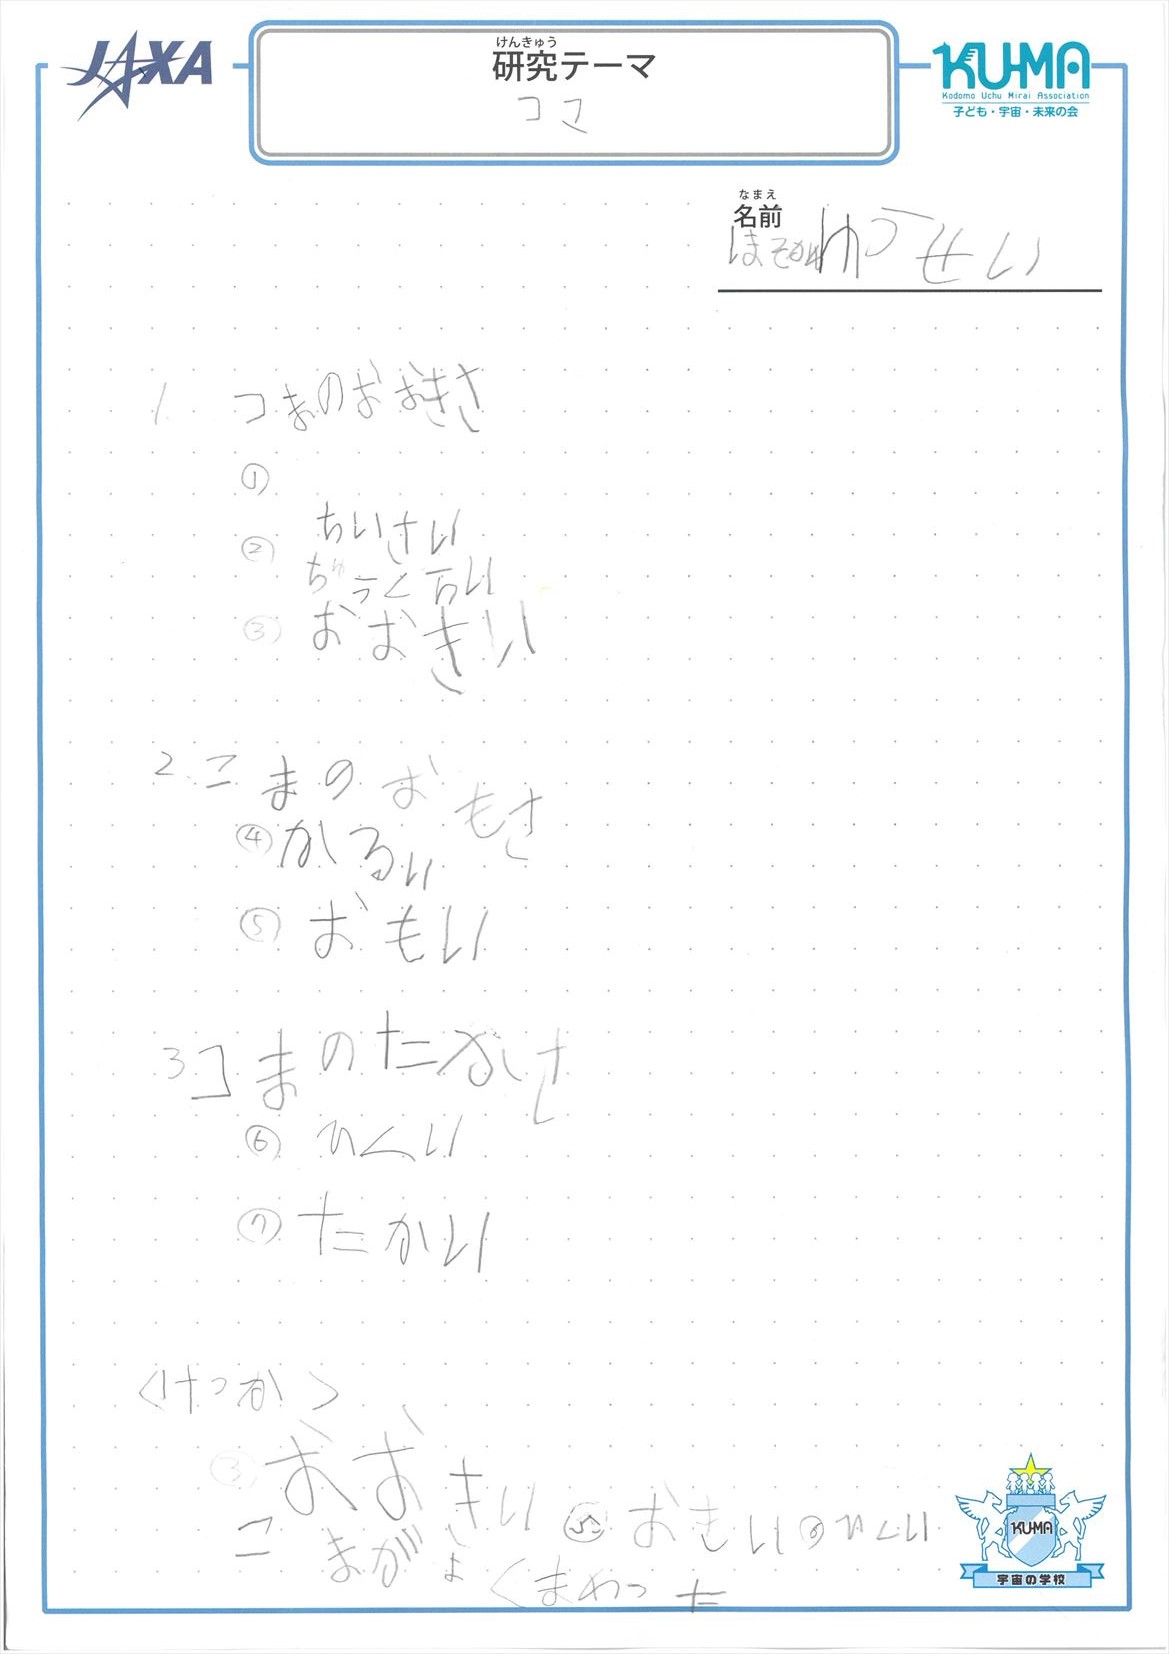 JAXA
けんきゅう
研究テーマ
コマ
KU-MA
Kodomo Uchu Mirai Association
子ども・宇宙・未来の会
なまえ
名前
ゆうせい
1. コまのおおきさ
①
ちいさい
②
ちゅうくらい
③ おおきい
2. こまのおもさ
④ かるい
⑤ おもい
3 コまのたかさ
⑥ ひくい
⑦ たかい
<けっか>
③ おおきい ⑤ おもい ⑥ ひくい
こまがよくまわった
KU-MA
宇宙の学校